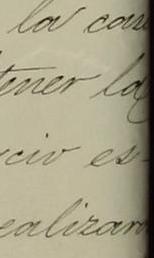 la cas
tener la
cio es-
ealizar